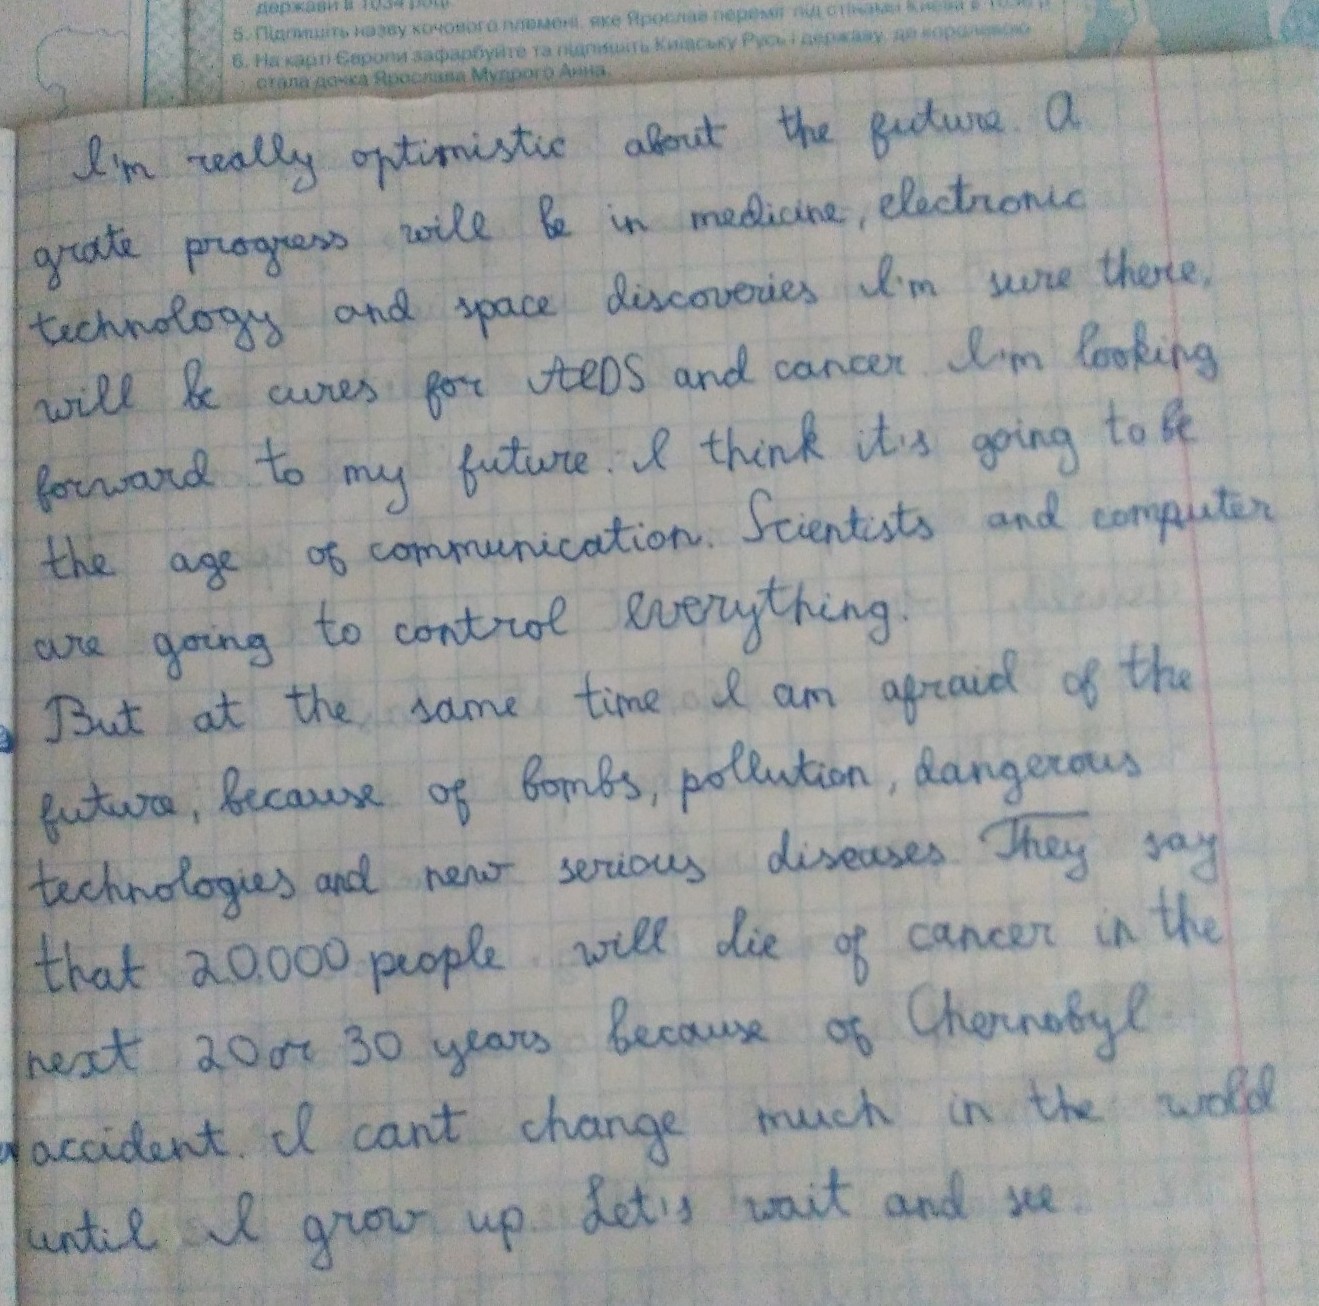 держави в 1034 році
5. Підпишіть назву кочового племені, яке Ярослав переміг під стінами Києва в
6. На карті Європи зафарбуйте та підпишіть Київську Русь і державу, де королевою
стала дочка Ярослава Мудрого Анна.
I'm really optimistic about the future. A
grate progress will be in medicine, electronic
technology and space discoveries I'm sure there
will be cures for AIDS and cancer I'm looking
forward to my future. I think it's going to be
the age of communication. Scientists and computer
are going to control everything.
But at the same time I am afraid of the
future, because of bombs, pollution, dangerous
technologies and new serious diseases They say
that 20.000 people will die of cancer in the
next 20 or 30 years because of Chernobyl
accident. I cant change much in the wold
until I grow up. Let's wait and see.